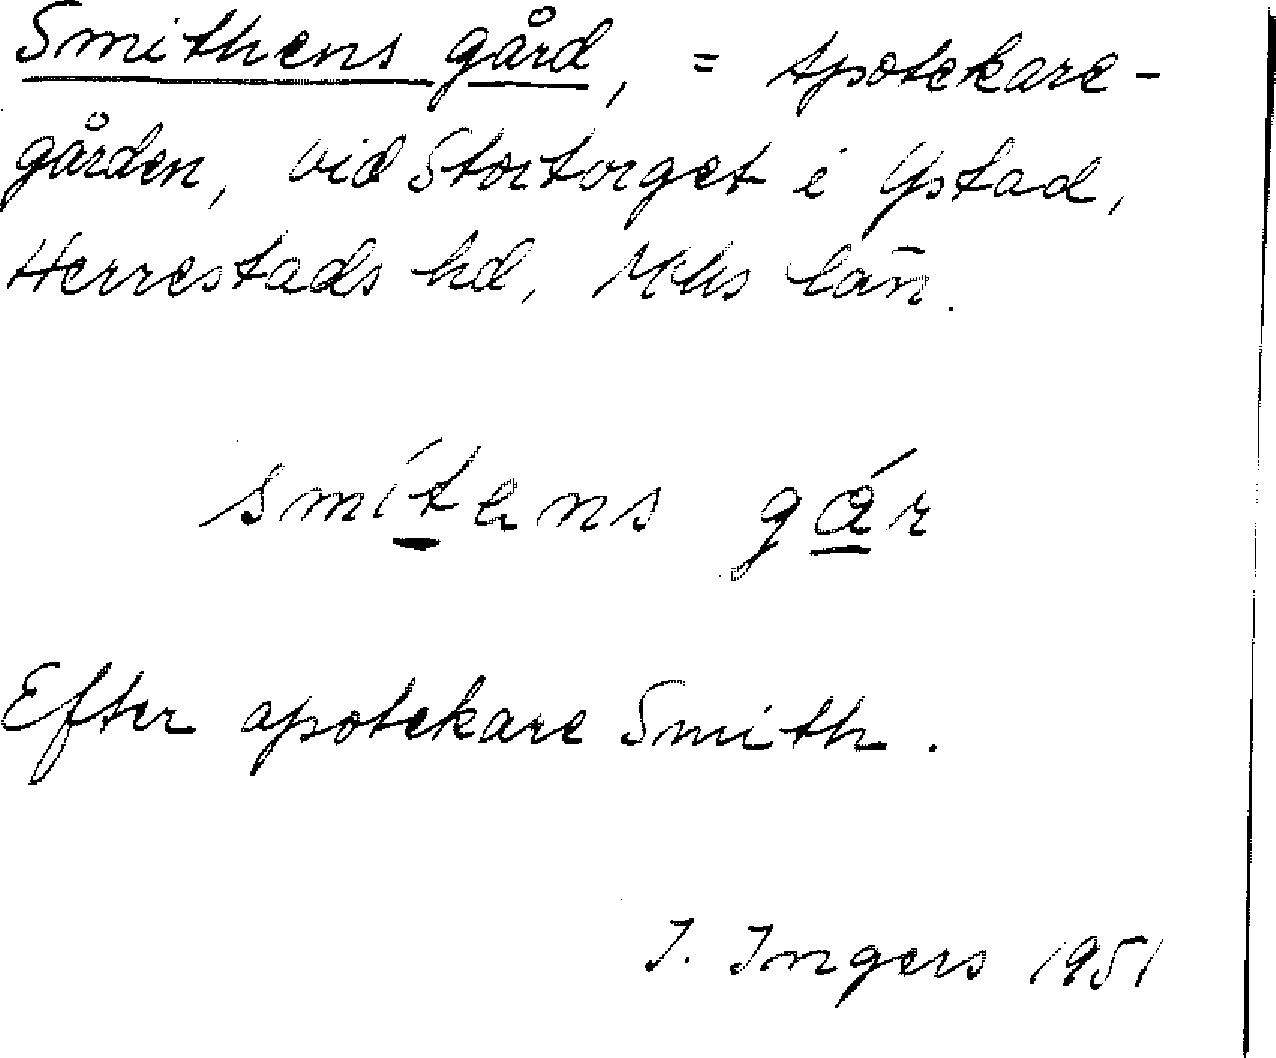 Smithens gård, = Apotekare-
gården, vid Stortorget i Ystad,
Herrestads hd, Mlhs län.
smítens gár
Efter apotekare Smith.
I. Ingers 1951